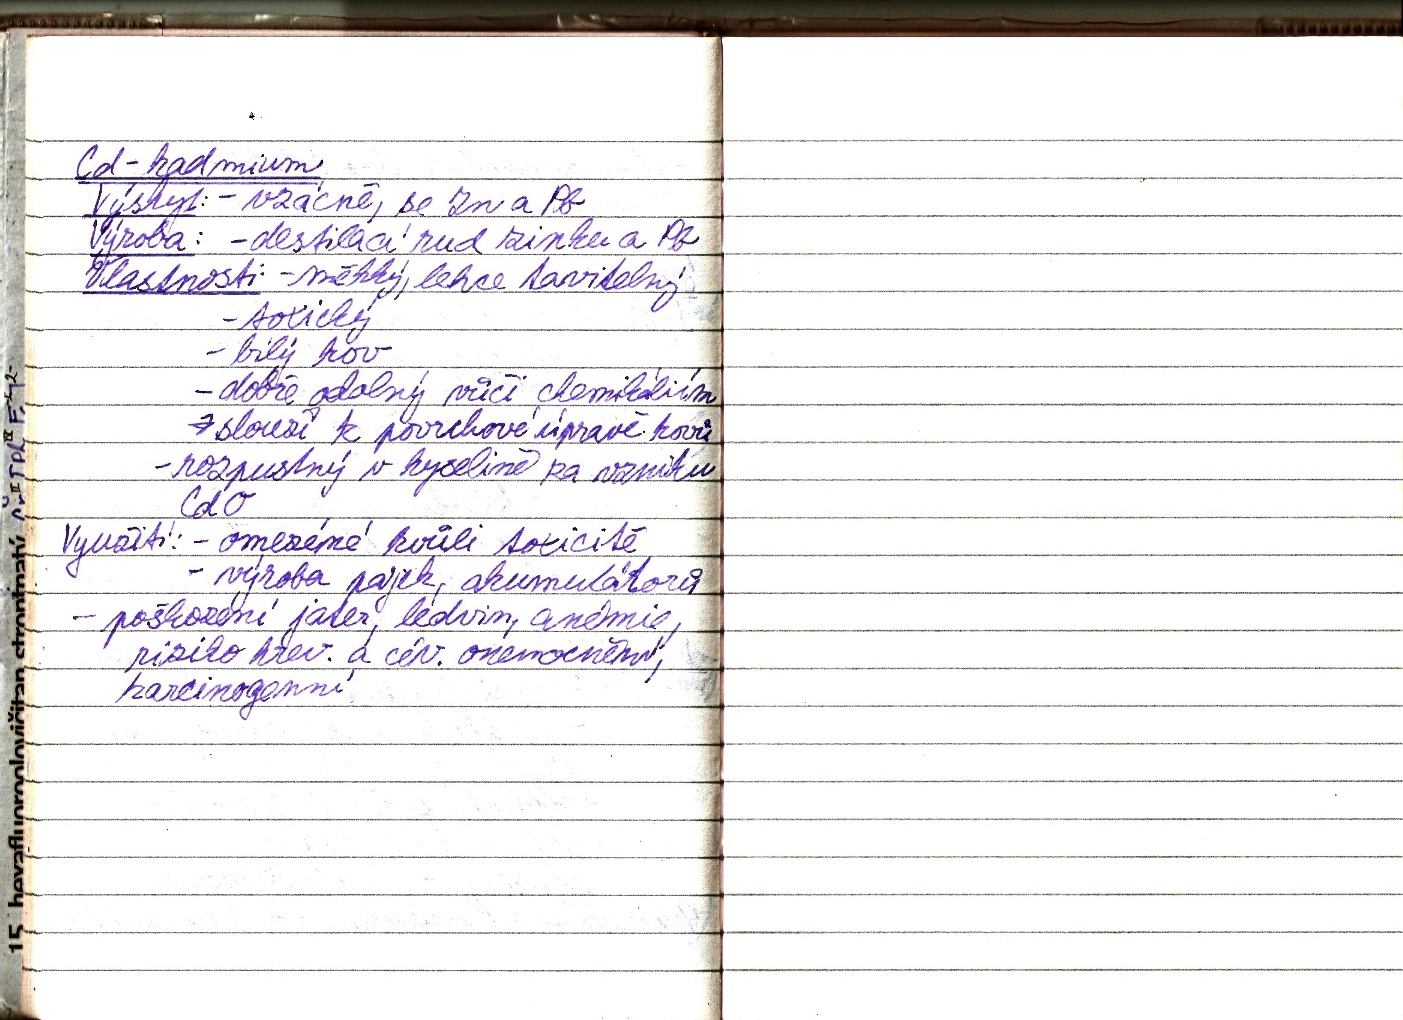 Cd - kadmium
Výskyt: - vzácně, se Zn a Pb
Výroba: - destilací rud zinku a Pb
Vlastnosti: - měkký, lehce tavitelný
- toxický
- bílý kov
- dobře odolný vůči chemikáliím
→ slouží k povrchové úpravě kovů
- rozpustný v kyselině za vzniku
CdO
Využití: - omezené kvůli toxicitě
- výroba pájek, akumulátorů
- poškození jater, ledvin, anémie,
riziko krev. a cév. onemocnění,
karcinogenní
15. hexafluoroolovičitan strontnatý